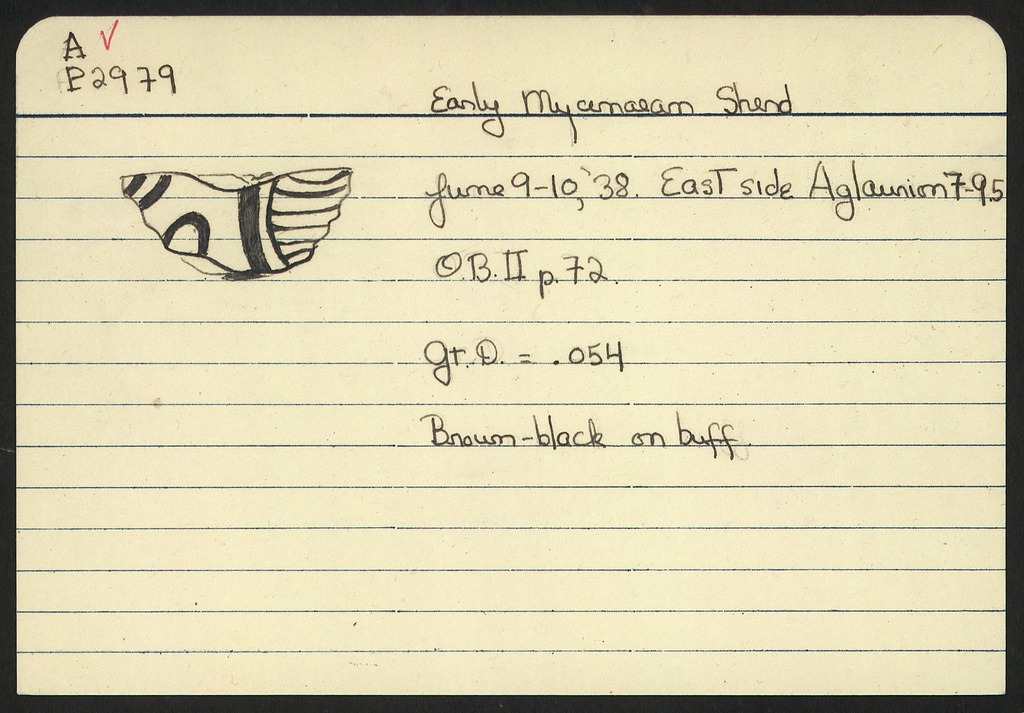 A ✓
P 2979
Early Mycenaean Sherd
June 9-10, '38. East side Aglaurion 7-9.5
O.B. II p. 72.
Gr. D. = .054
Brown-black on buff.